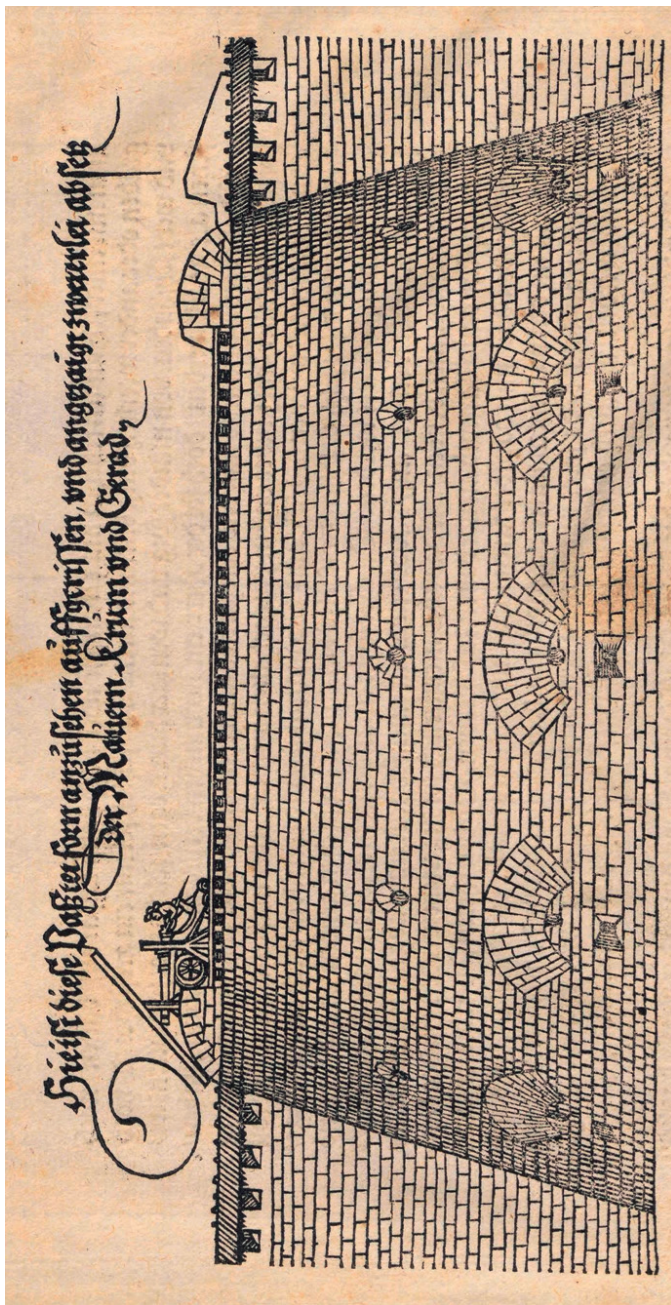 Hie ist diese Paßtei forn anzůsehen auffgerissen, vnd angezaigt zweierlei absetz
der Mauern Krum vnd Gerad,